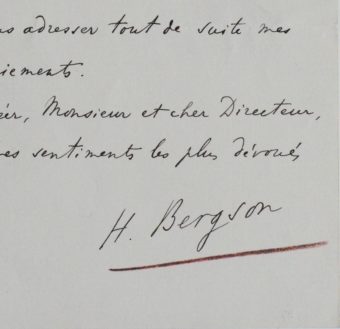 adresser tout de suite mes
iements.
Monsieur et cher Directeur,
es sentiments les plus dévoués
H. Bergson